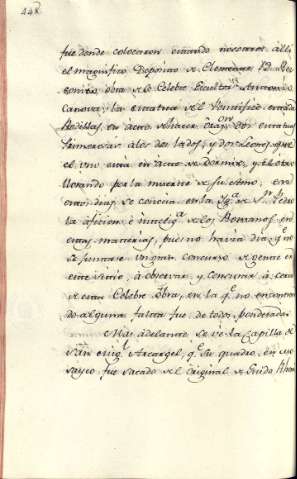 442
fue donde colocaron quando nosotros alli
el magnifico Deposito de Clemente
obra de el Celebre Escultor Antonio
Canova; la estatua de el Pontifice
Rodillas, en acto de hacer Oraz.on Dos estatuas
à los dos lados, y dos Leones, que
el uno está en acto de Dormir, y el otro
llorando por la muerte de su
estos dias se conocia en la Yg.a de S.n Pedro
la aficion, è intelig.a de los Romanos en
estas materias, pues no havia dia q.e no
se juntase un gran concurso de gente en
este sitio, à observar, y censurar à
esta Celebre Obra, en la q.e no encontran
do alguna falta fue de todos ponderada
Mas adelante se ve la Capilla de
San Mig.l Arcangel, q.e su quadro, en mo
sayco fue sacado de el Original de Guido Rheni